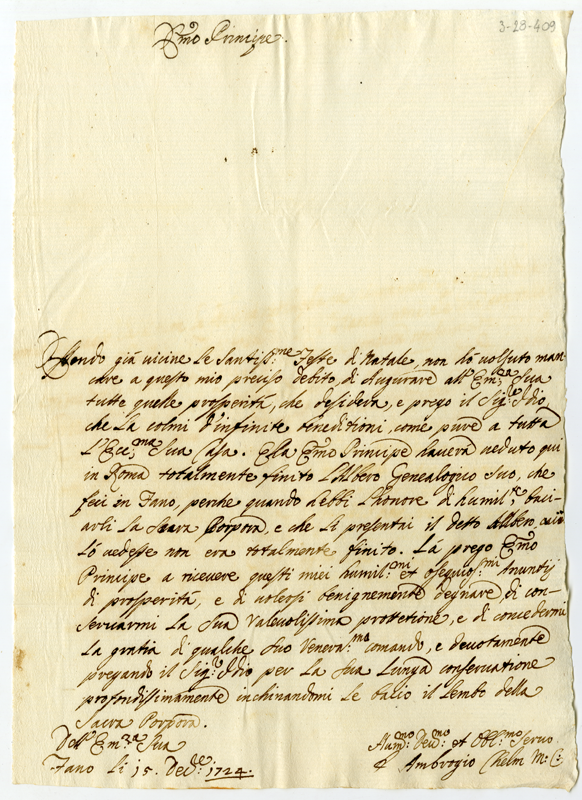 3-28-409
Em:o Principe.
Essendo già vicine le Santiss:me Feste di Natale, non hò volsuto man-
care a questo mio preciso debito, di Augurare all' Em:za Sua
tutte quelle prosperità, che desidera, e prego il Sig:re Idio,
che La colmi d'infinite benedizioni, come pure a tutta
L'Ecc:ma Sua Casa. Ella Em:o Principe haverà veduto qui
in Roma totalmente finito L'Albero Genealogico Suo, che
feci in Fano, perche quando hebbi L'honore di humil:te bac-
iarli La Sacra Porpora, e che Li presentai il detto Albero,
Lo vedesse non era totalmente finito. Là prego Em:o
Principe a ricevere questi miei humil:mi et osequios:mi Anuntij
di prosperità, e di volersi benignamente degnare, di con-
servarmi La Sua Valevolissima protetione, e di concedermi
La gratia di qualche Suo Venera:mo comando, e devotamente
pregando il Sig:re Idio per La Sua Lunga conservatione
profondissimamente inchinandomi Le bacio il Lembo della
Sacra Porpora.
Dell' Em:za Sua
Fano li 15. Dec:re 1724.
Hum:mo Dev:mo et Obbl:mo Servo
Ambrogio Chelm M: C: